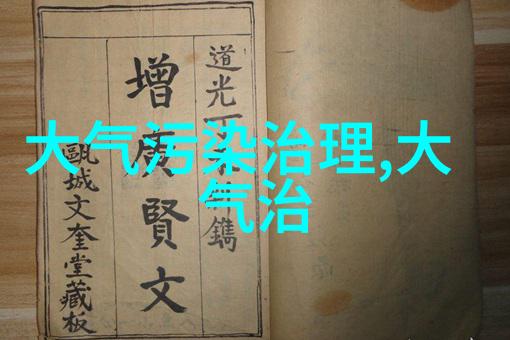 大气污染治理,大
气治
道光鐫
增廣賢文
甌城文奎堂藏板